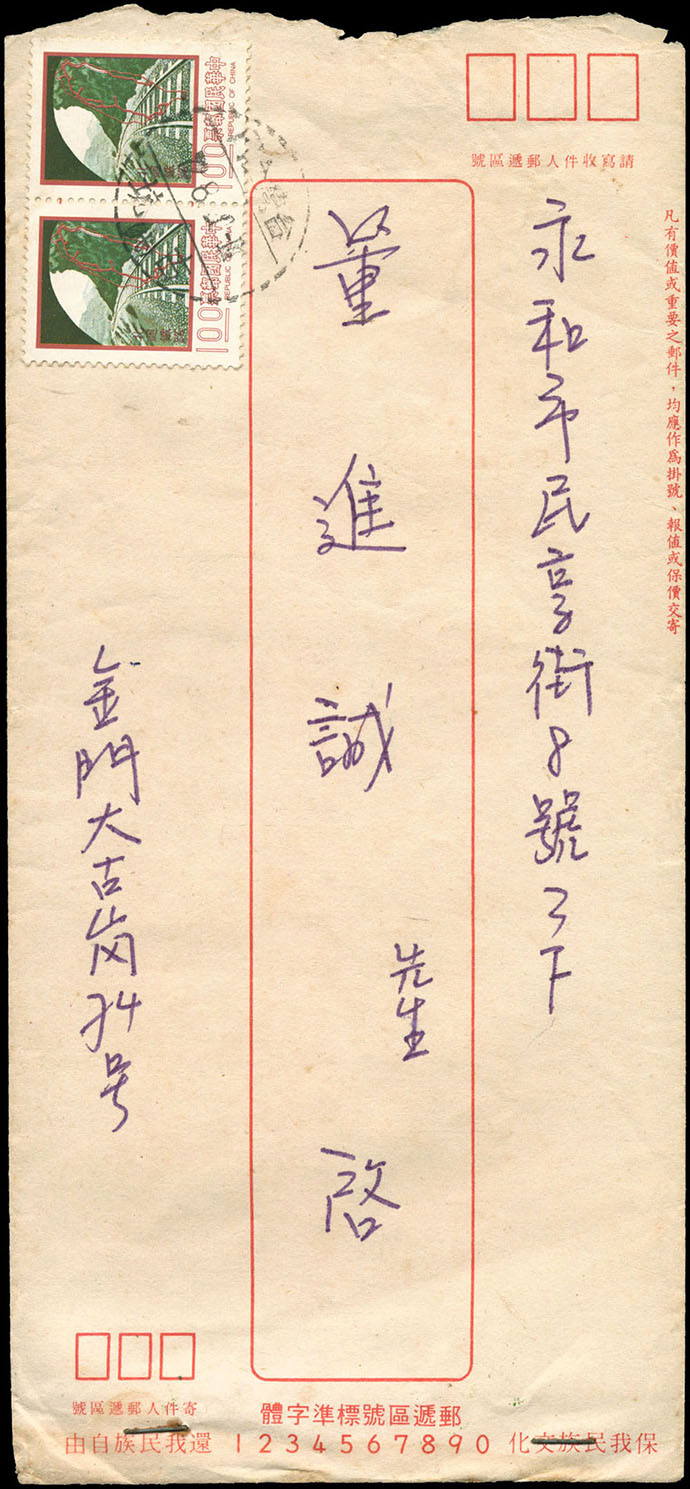 中華民國郵票
REPUBLIC OF CHINA
100
中華民國郵票
100
請寫收件人郵遞區號
凡有價值或重要之郵件，均應作為掛號、報值或保價交寄
永和市民享街8號3下
董進誠先生啓
金門大古崗74号
寄件人郵遞區號
郵遞區號標準字體
保我民族文化
1234567890
還我民族自由